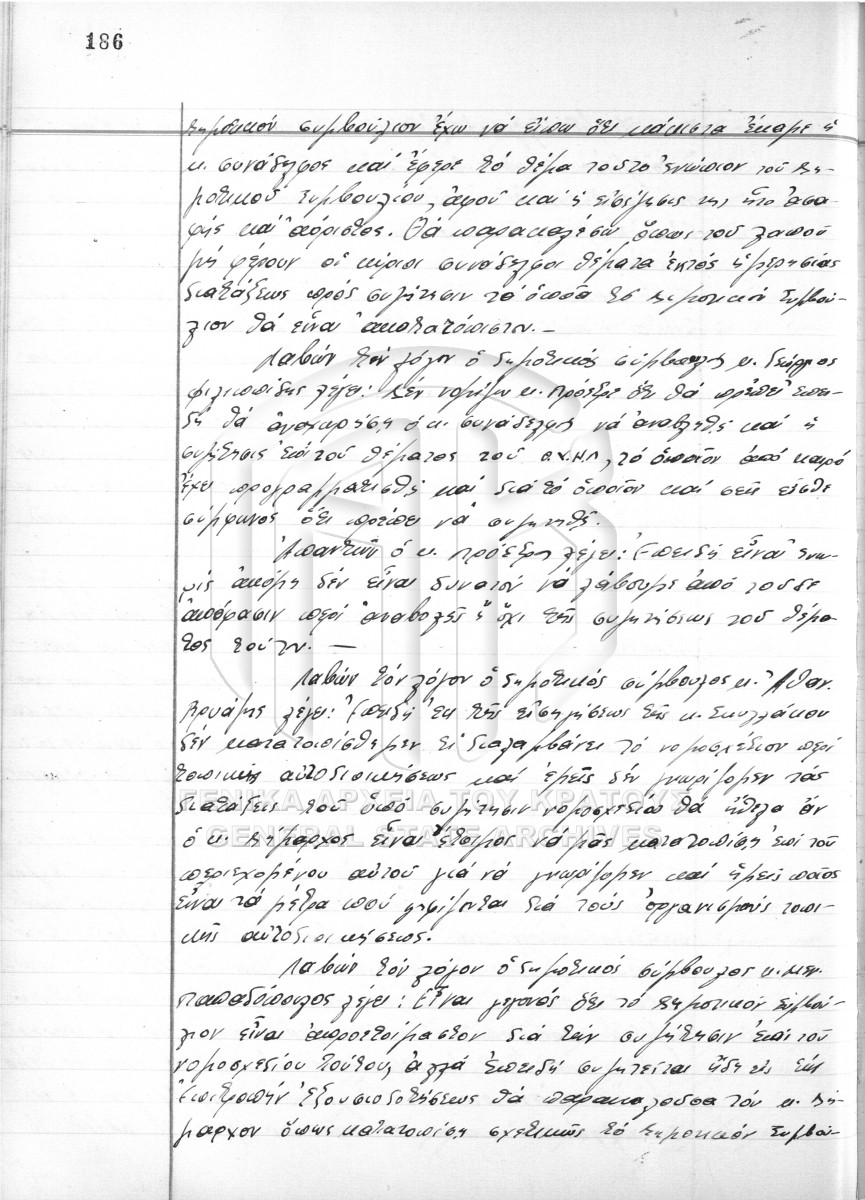 186
Δημοτικόν συμβούλιον ἔχω νά εἴπω ὅτι κάκιστα ἔκαμε ἡ
κ. συνάδελφος καί ἔφερε τό θέμα τοῦτο ἐνώπιον τοῦ Δη-
μοτικοῦ Συμβουλίου, ἀφοῦ καί ἡ εἰσήγησις της ἦτο ἀσα-
φής καί ἀόριστος. Θά παρακαλέσω ὅπως τοῦ λοιποῦ
μή φέρουν οἱ κύριοι συνάδελφοι θέματα ἐκτός ἡμερησίας
διατάξεως πρός συζήτησιν τά ὁποῖα τό Δημοτικόν Συμβού-
λιον θά εἶναι ἀκατατόπιστον.—
Λαβών τόν λόγον ὁ δημοτικός σύμβουλος κ. Γεώργιος
Φιλιππίδης λέγει: Δέν νομίζω κ. Πρόεδρε ὅτι θά πρέπει ἐπει-
δή θά ἀναχωρήση ὁ κ. συνάδελφος νά ἀναβληθῆ καί ἡ
συζήτησις ἐπί τοῦ θέματος τοῦ, τό ὁποῖον ἀπό καιρό
ἔχει προγραμματισθῆ καί διά τό ὁποῖον καί σεῖς εἶσθε
σύμφωνος ὅτι πρέπει νά συζητηθῆ.
Ἀπαντῶν ὁ κ. Πρόεδρος λέγει: Ἐπειδή εἶναι ἐνω-
ρίς ἀκόμη δέν εἶναι δυνατόν νά λάβουμε ἀπό τοῦδε
ἀπόφασιν περί ἀναβολῆς ἤ ὄχι τῆς συζητήσεως τοῦ θέμα-
τος τούτου.—
Λαβών τόν λόγον ὁ δημοτικός σύμβουλος κ. Ἀθαν.
λέγει: Ἐπειδή ἐκ τῆς εἰσηγήσεως τῆς κ. Σκυλλάκου
δέν κατατοπίσθημεν τί διαλαμβάνει τό νομοσχέδιον περί
τοπικῆς αὐτοδιοικήσεως καί ἐμεῖς δέν γνωρίζομεν τάς
διατάξεις τοῦ ὑπό συζήτησιν νομοσχεδίου θά ἤθελα ἄν
ὁ κ. Δήμαρχος εἶναι ἕτοιμος νά μᾶς κατατοπίση ἐπί τοῦ
περιεχομένου αὐτοῦ γιά νά γνωρίζομεν καί ἡμεῖς ποῖα
εἶναι τά μέτρα πού ψηφίζονται διά τούς ὀργανισμούς τοπι-
κῆς αὐτοδιοικήσεως.
Λαβών τόν λόγον ὁ δημοτικός σύμβουλος κ. Μεν.
Παπαδόπουλος λέγει: Εἶναι γεγονός ὅτι τό Δημοτικόν Συμβού-
λιον εἶναι ἀπροετοίμαστον διά τήν συζήτησιν ἐπί τοῦ
νομοσχεδίου τούτου, ἀλλά ἐπειδή συζητεῖται ἤδη εἰς τήν
Ἐπιτροπήν Ἐξουσιοδοτήσεως θά παρακαλοῦσα τόν κ. Δή-
μαρχον ὅπως κατατοπίση σχετικῶς τό Δημοτικόν Συμβού-
ΓΕΝΙΚΑ ΑΡΧΕΙΑ ΤΟΥ ΚΡΑΤΟΥΣ
GENERAL STATE ARCHIVES